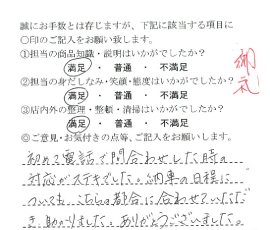 誠にお手数とは存じますが、下記に該当する項目に
○印のご記入をお願い致します。
①担当の商品知識・説明はいかがでしたか？
満足 ・ 普通 ・ 不満足
②担当の身だしなみ・笑顔・態度はいかがでしたか？
満足 ・ 普通 ・ 不満足
③店内外の整理・整頓・清掃はいかがでしたか？
満足 ・ 普通 ・ 不満足
◎ご意見・お気付きの点等、ご記入をお願いします。
初めて電話で問合わせした時の
対応がステキでした。納車の日程に
ついても、こちらの都合に合わせていただ
き、助かりました。ありがとうございました。